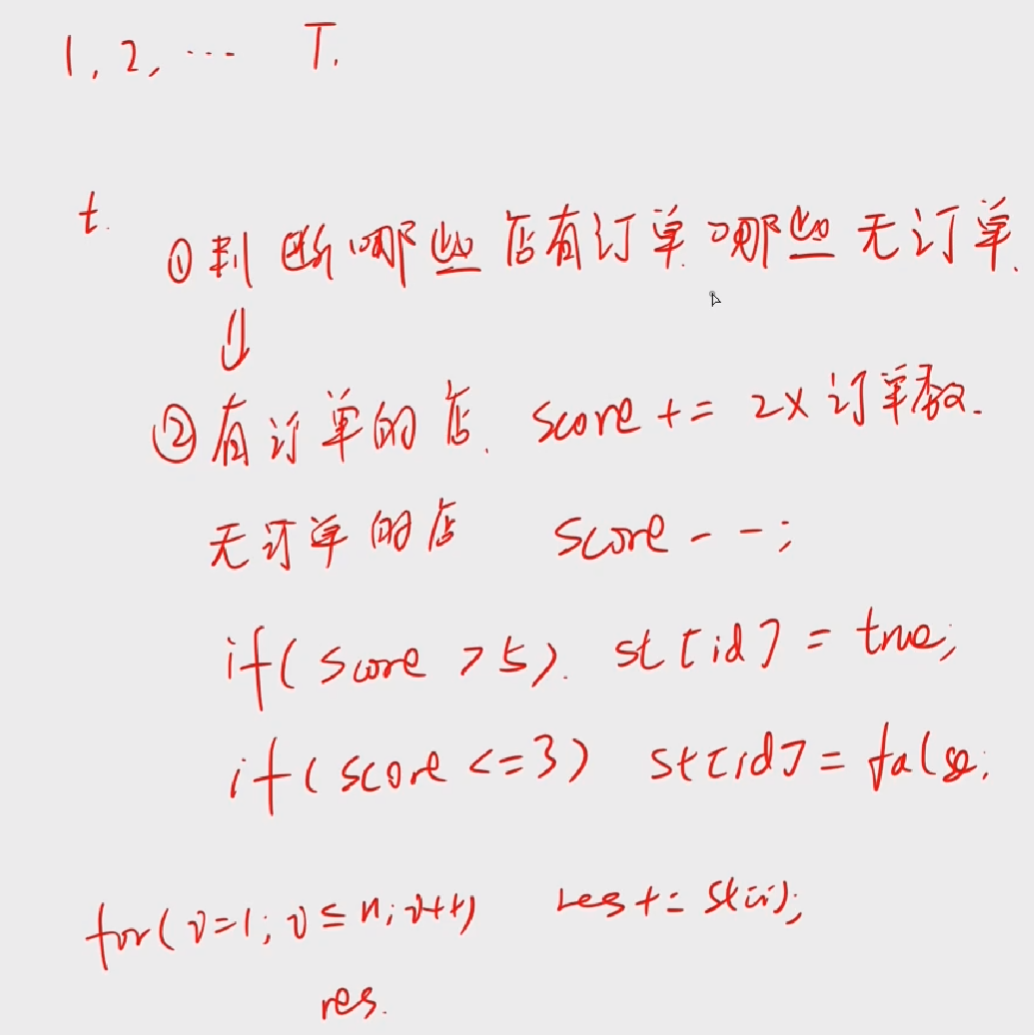 1, 2, ... T.
t.
①判断哪些店有订单.哪些无订单.
②有订单的店. score += 2× 订单数.
无订单的店 score --;
if( score >5). st[id] = true;
if( score <=3) st[id] = false;
for( i=1; i≤n; i++) res += st[i];
res.